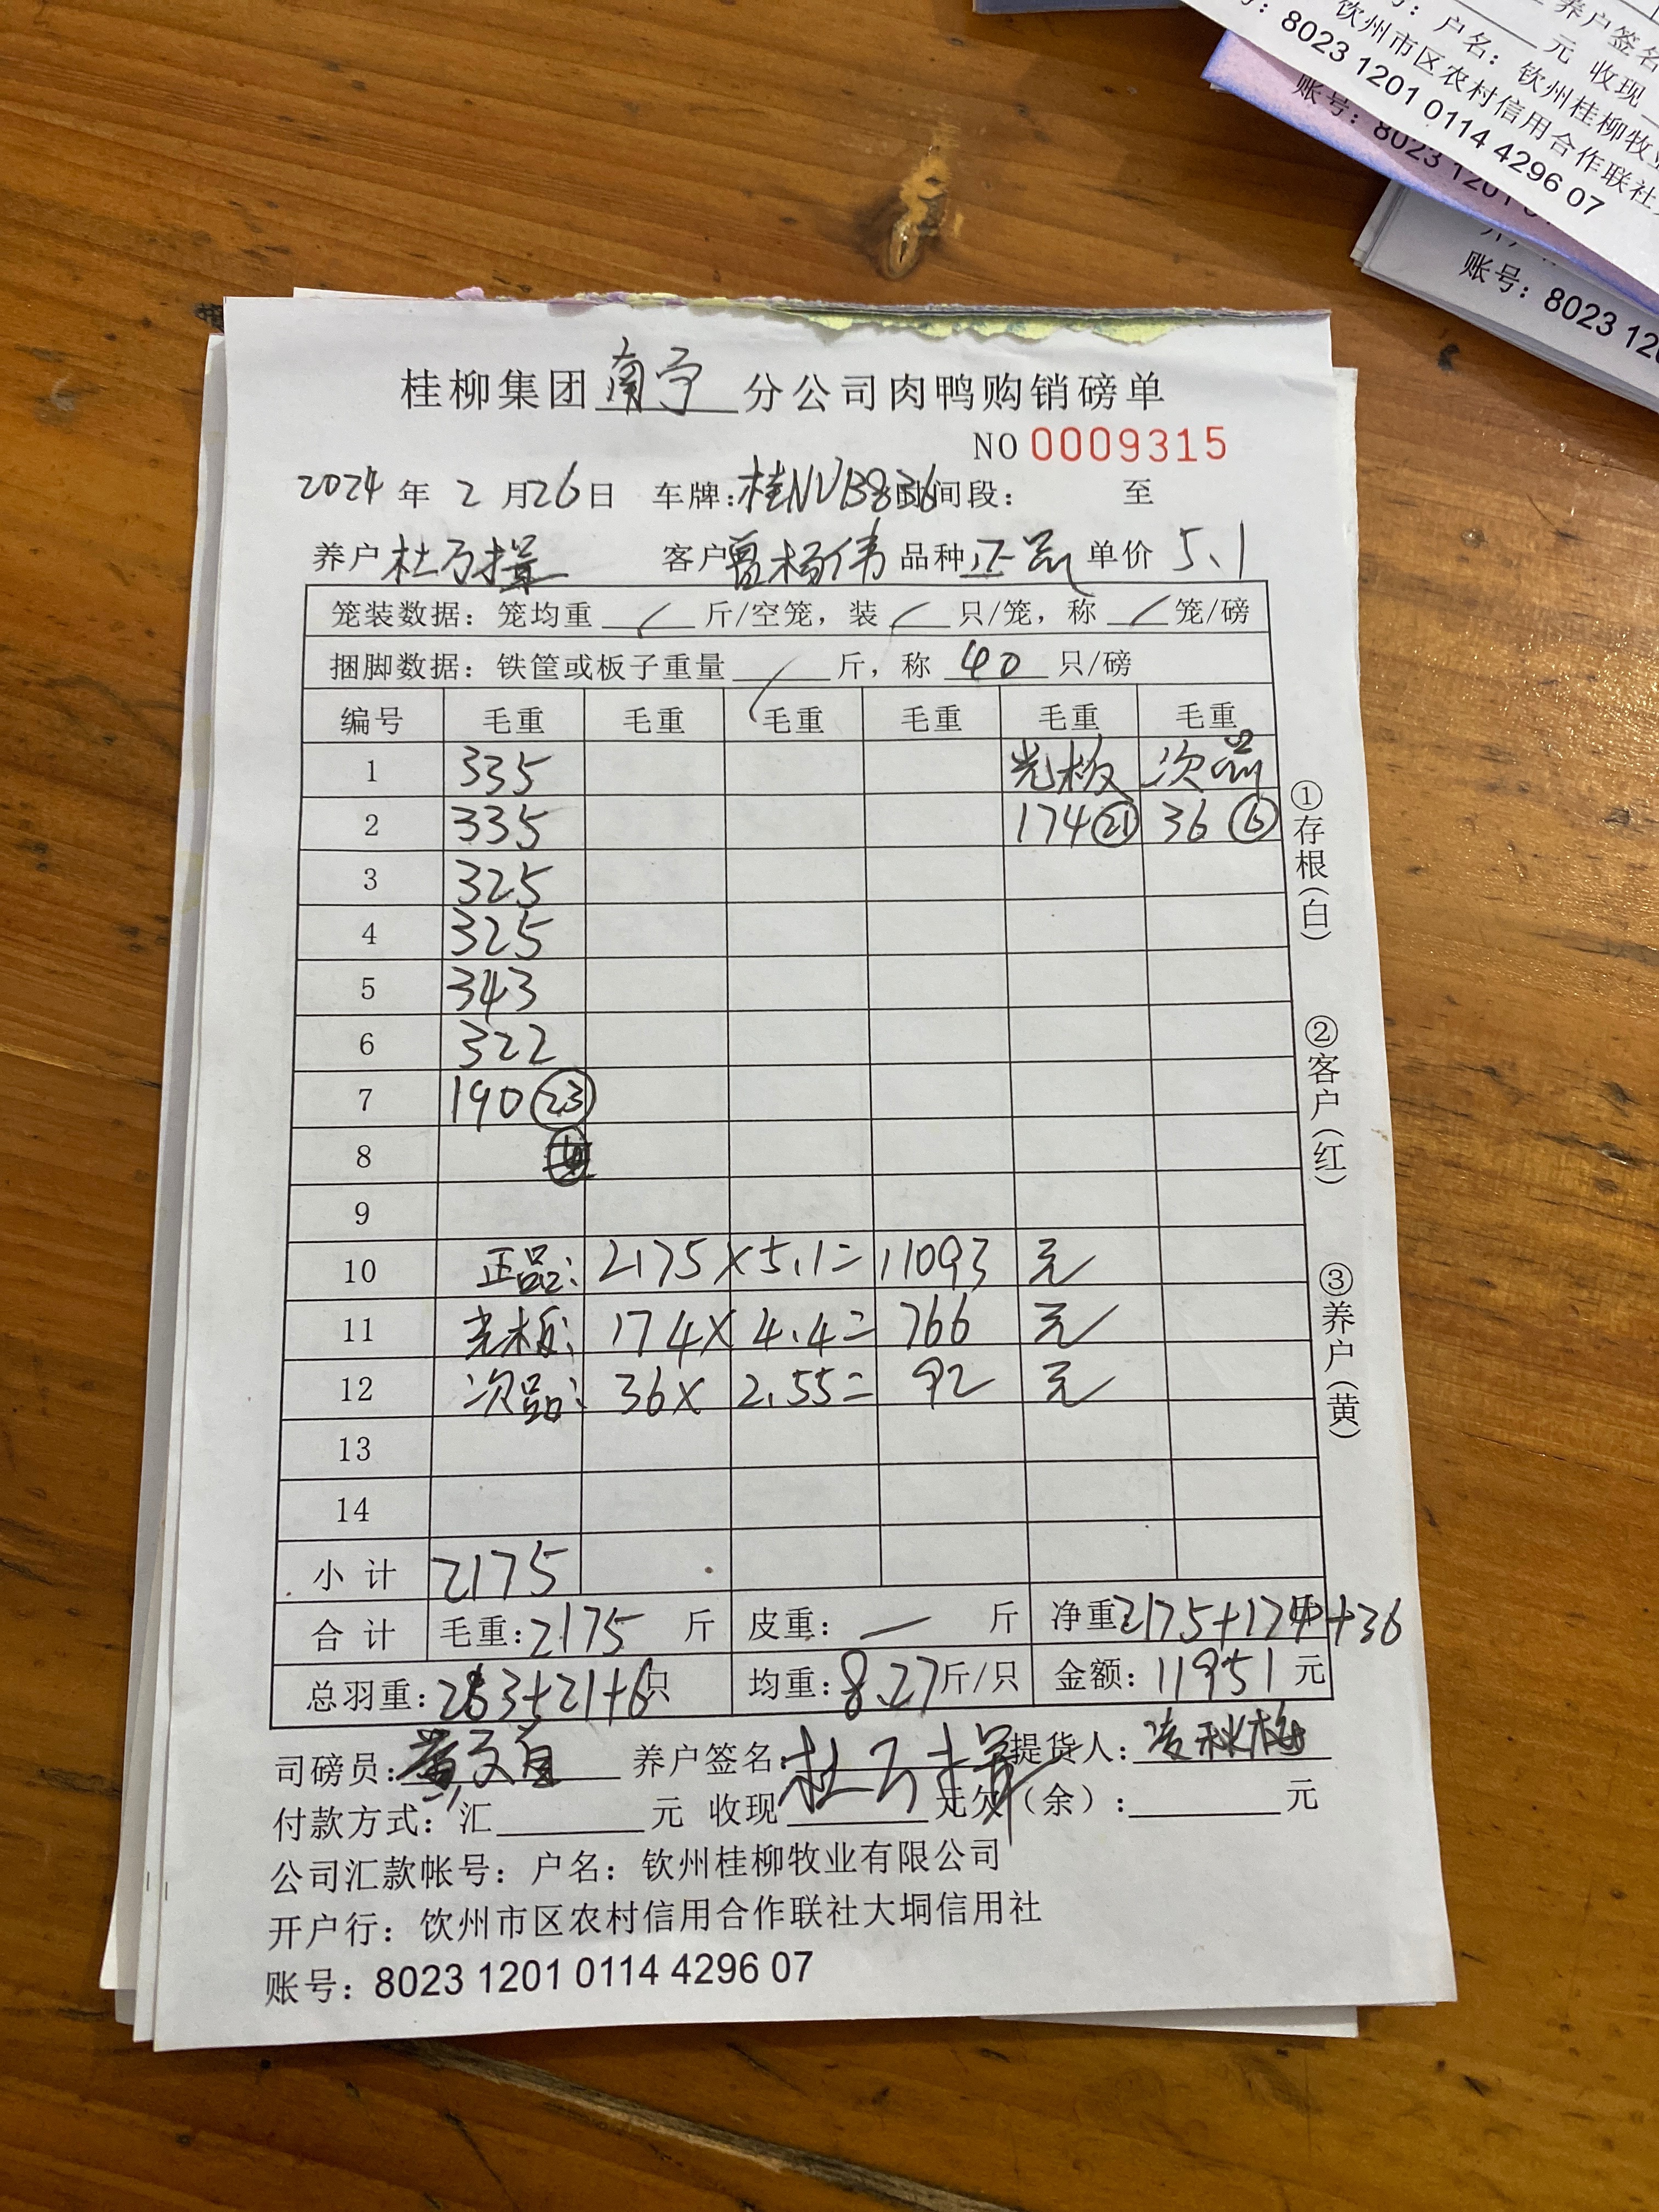 号：户名：钦州桂柳牧业
钦州市区农村信用合作联社
8023 1201 0114 4296 07
账号：8023 1201 0
账号：8023 120
桂柳集团南宁分公司肉鸭购销磅单
NO 0009315
2024年2月26日 车牌：桂NVB836时间段： 至
养户杜 客户曾杨伟 品种正品 单价 5.1
笼装数据：笼均重 / 斤/空笼，装 / 只/笼，称 / 笼/磅
捆脚数据：铁筐或板子重量 / 斤，称 40 只/磅
编号 毛重 毛重 毛重 毛重 毛重 毛重
1 335 光板 次品
2 335 174 ㉑ 36 ⑥
3 325
4 325
5 343
6 322
7 190 ㉓
8
9
10 正品： 2175 × 5.1 = 11093 元
11 光板： 174 × 4.4 = 766 元
12 次品： 36 × 2.55 = 92 元
13
14
小计 2175
合计 毛重：2175 斤 皮重：— 斤 净重2175+174+36
总羽重：263+21+6只 均重：8.27斤/只 金额：11951元
司磅员：黄 养户签名：杜 提货人：凌秋梅
付款方式：汇 元 收现 元欠（余）： 元
公司汇款帐号：户名：钦州桂柳牧业有限公司
开户行：钦州市区农村信用合作联社大垌信用社
账号：8023 1201 0114 4296 07
①存根（白）
②客户（红）
③养户（黄）